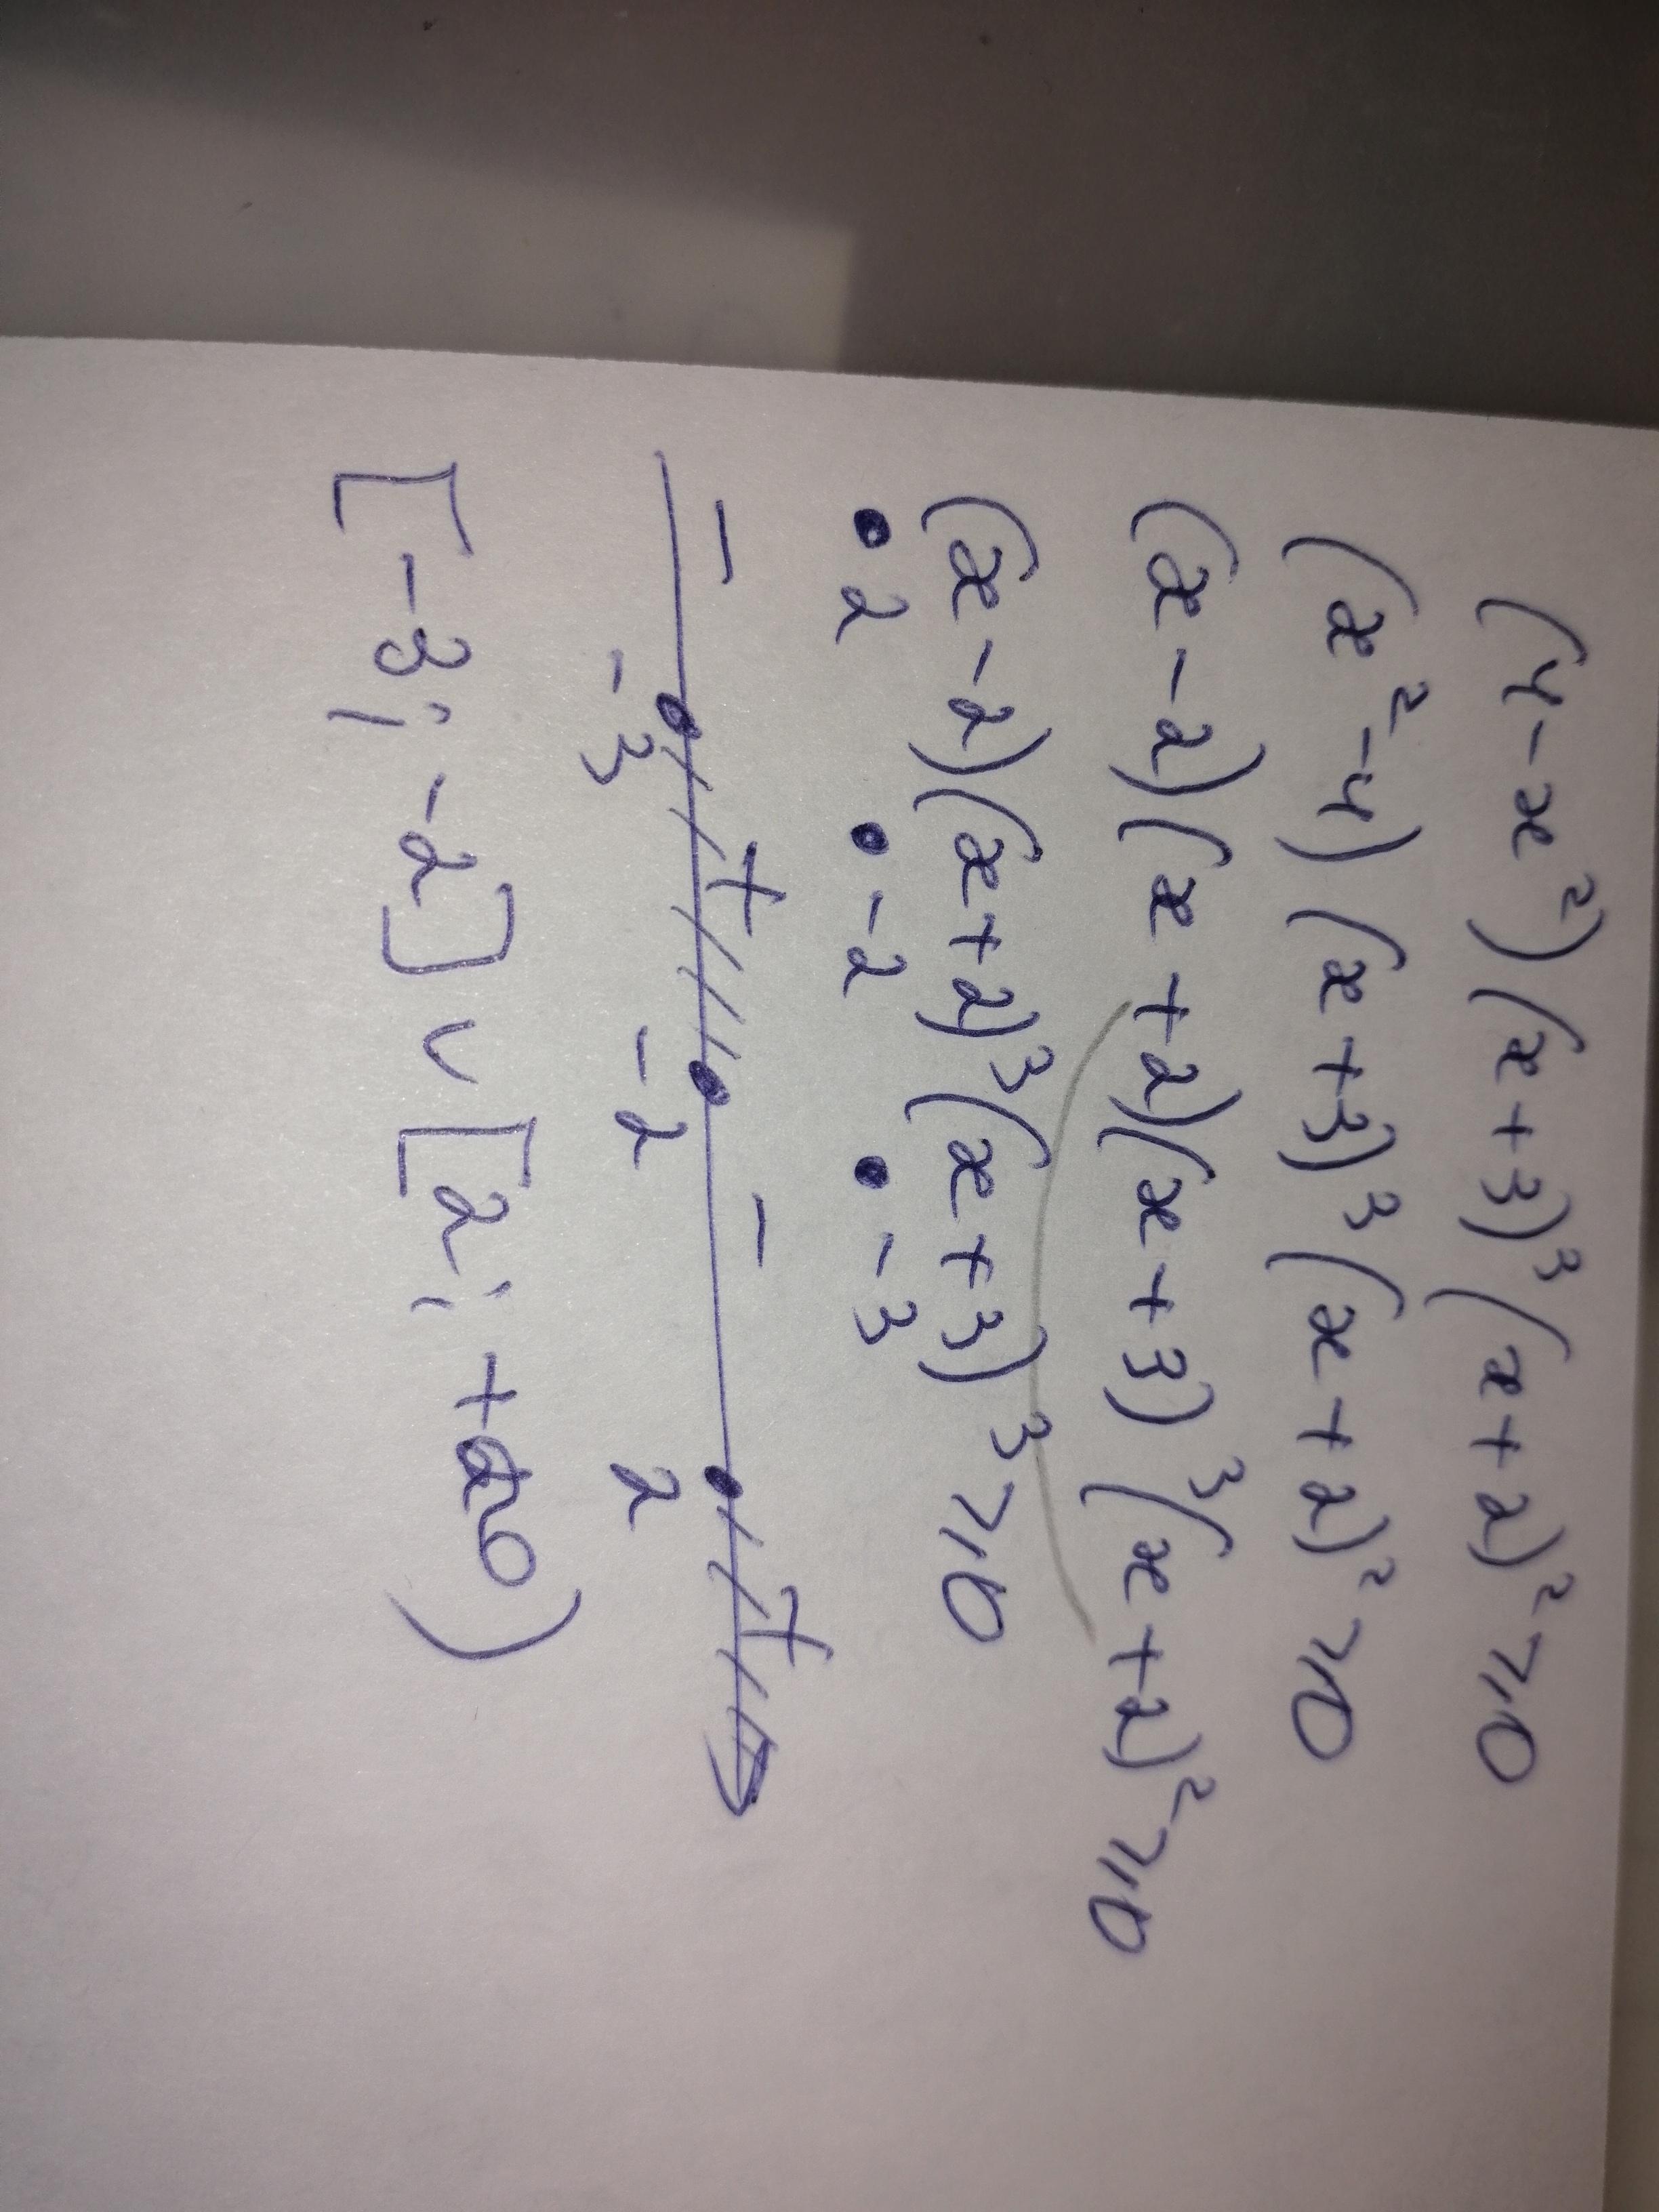 (4-x²)(x+3)³(x+2)²⩾0
(x²-4)(x+3)³(x+2)²⩾0
(x-2)(x+2)(x+3)³(x+2)²⩾0
(x-2)(x+2)³(x+3)³⩾0
• 2 • -2 • -3
- + - +
-3 -2 2
[-3; -2] ∪ [2; +∞)